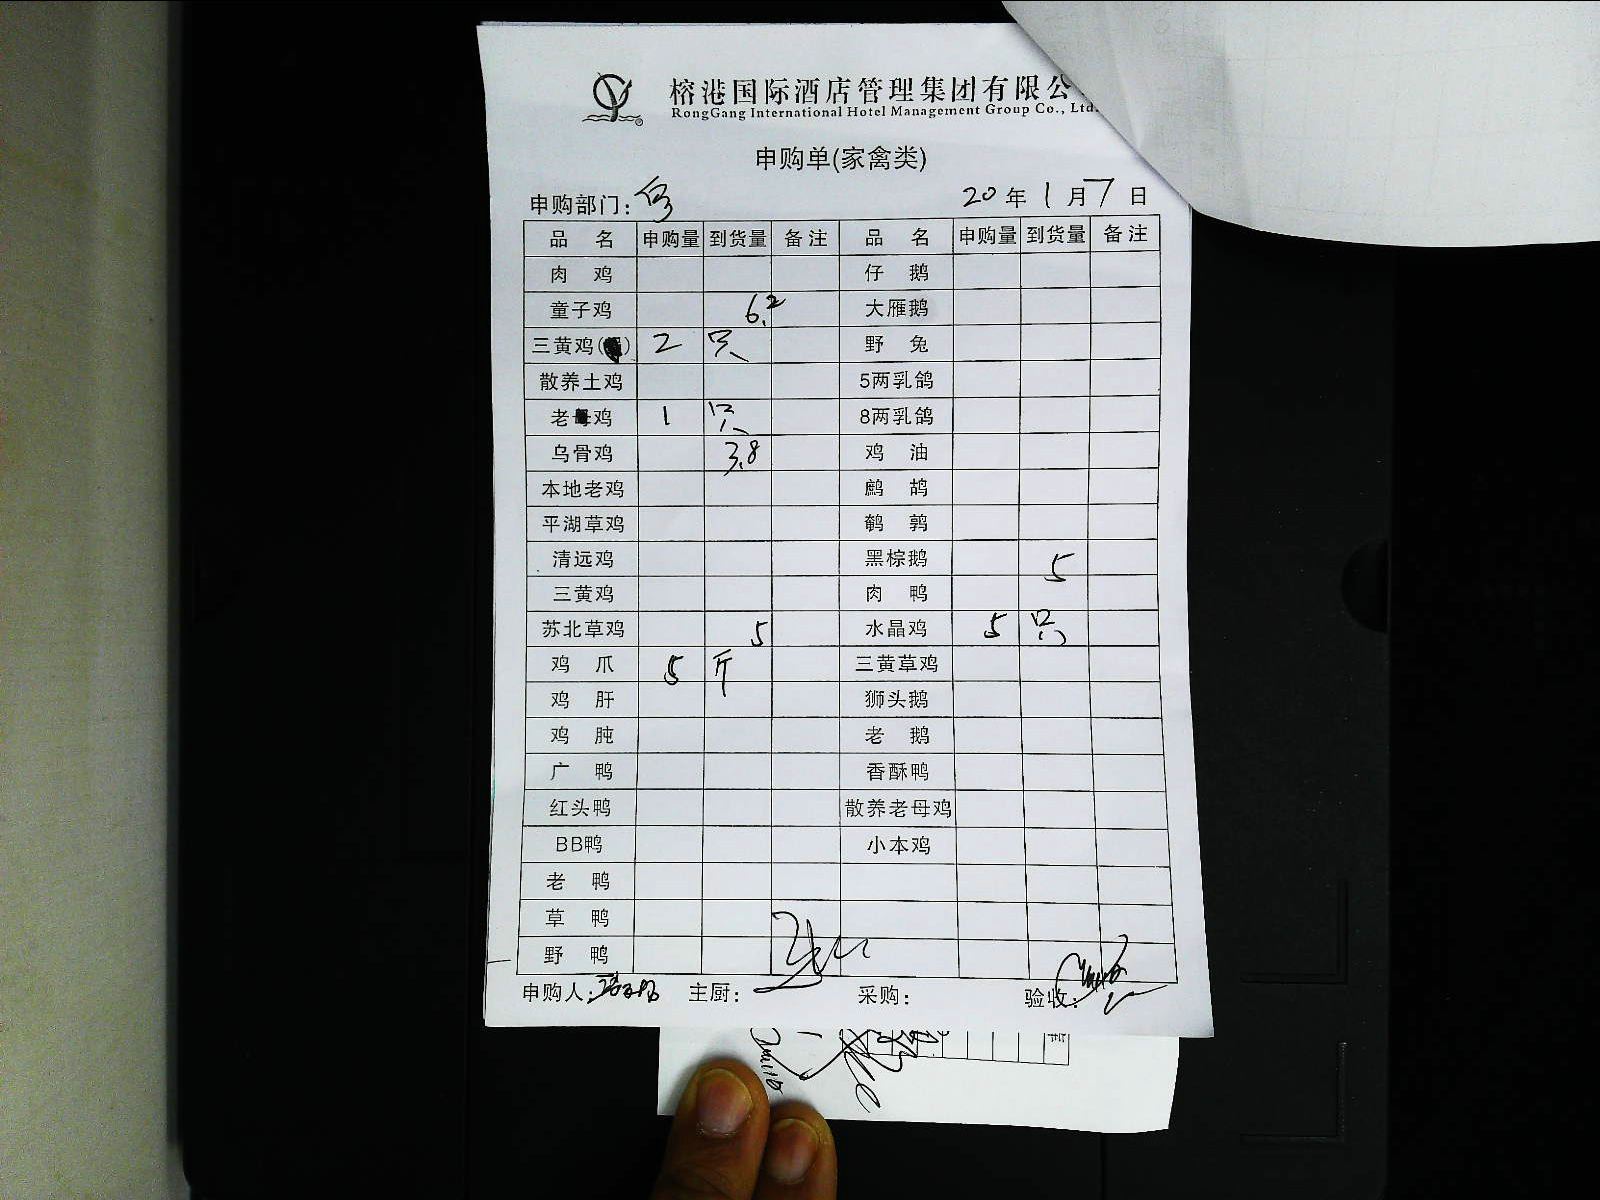 榕港国际酒店管理集团有限公
RongGang International Hotel Management Group Co., Ltd.
申购单(家禽类)
申购部门: 20年1月7日
品名 申购量 到货量 备注 品名 申购量 到货量 备注
肉鸡 仔鹅
童子鸡 6.2 大雁鹅
三黄鸡( ) 2 只 野兔
散养土鸡 5两乳鸽
老母鸡 1 只 8两乳鸽
乌骨鸡 3.8 鸡油
本地老鸡 鹧鸪
平湖草鸡 鹌鹑
清远鸡 黑棕鹅 5
三黄鸡 肉鸭
苏北草鸡 5 水晶鸡 5 只
鸡爪 5 斤 三黄草鸡
鸡肝 狮头鹅
鸡肫 老鹅
广鸭 香酥鸭
红头鸭 散养老母鸡
BB鸭 小本鸡
老鸭
草鸭
野鸭
申购人: 主厨: 采购: 验收: